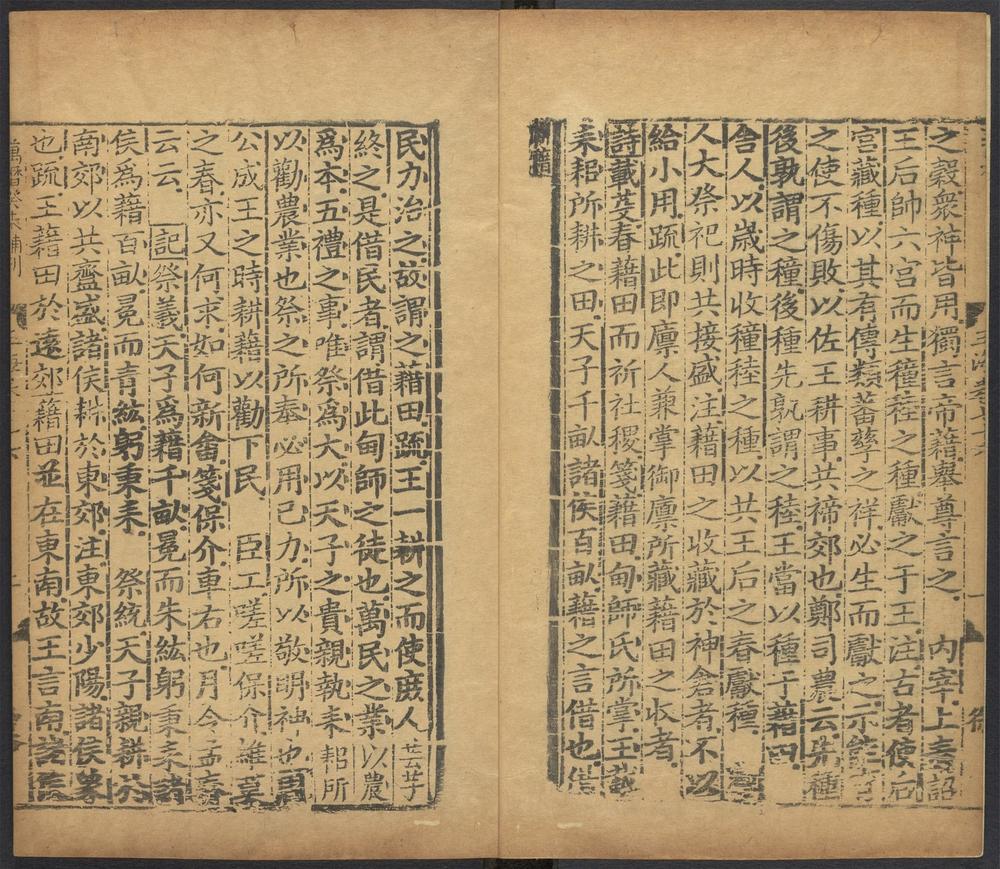 之穀衆神皆用獨言帝藉舉尊言之 内宰上春詔
王后帥六宮而生穜稑之種獻之于王注古者使后
宮藏種以其有傳類蕃孳之祥必生而獻之示能
之使不傷敗以佐王耕事共禘郊也鄭司農云先種
後孰謂之穜後種先孰謂之稑王當以種于藉田
舍人以歲時收穜稑之種以共王后之春獻種
人大祭祀則共接盛注藉田之收藏於神倉者不以
給小用疏此即廪人兼掌御廪所藏藉田之收者
詩載芟春藉田而祈社稷箋藉田甸師氏所掌王載
耒耜所耕之田天子千畝諸侯百畝藉之言借也借
耕藉
玉海卷七十六
民力治之故謂之藉田疏王一耕之而使庶人芸芓
終之是借民者謂借此甸師之徒也萬民之業以農
爲本五禮之事唯祭爲大以天子之貴親執耒耜所
以勸農業也祭之所奉必用己力所以敬明神也
公成王之時耕藉以勸下民 臣工嗟嗟保介維莫
之春亦又何求如何新畬箋保介車右也月令孟春
云云 記祭義天子爲藉千畝冕而朱紘躬秉耒諸
侯爲藉百畝冕而青紘躬秉耒 祭統天子親耕於
南郊以共齍盛諸侯耕於東郊注東郊少陽諸侯象
也疏王藉田於遠郊藉田並在東南故王言南諸侯